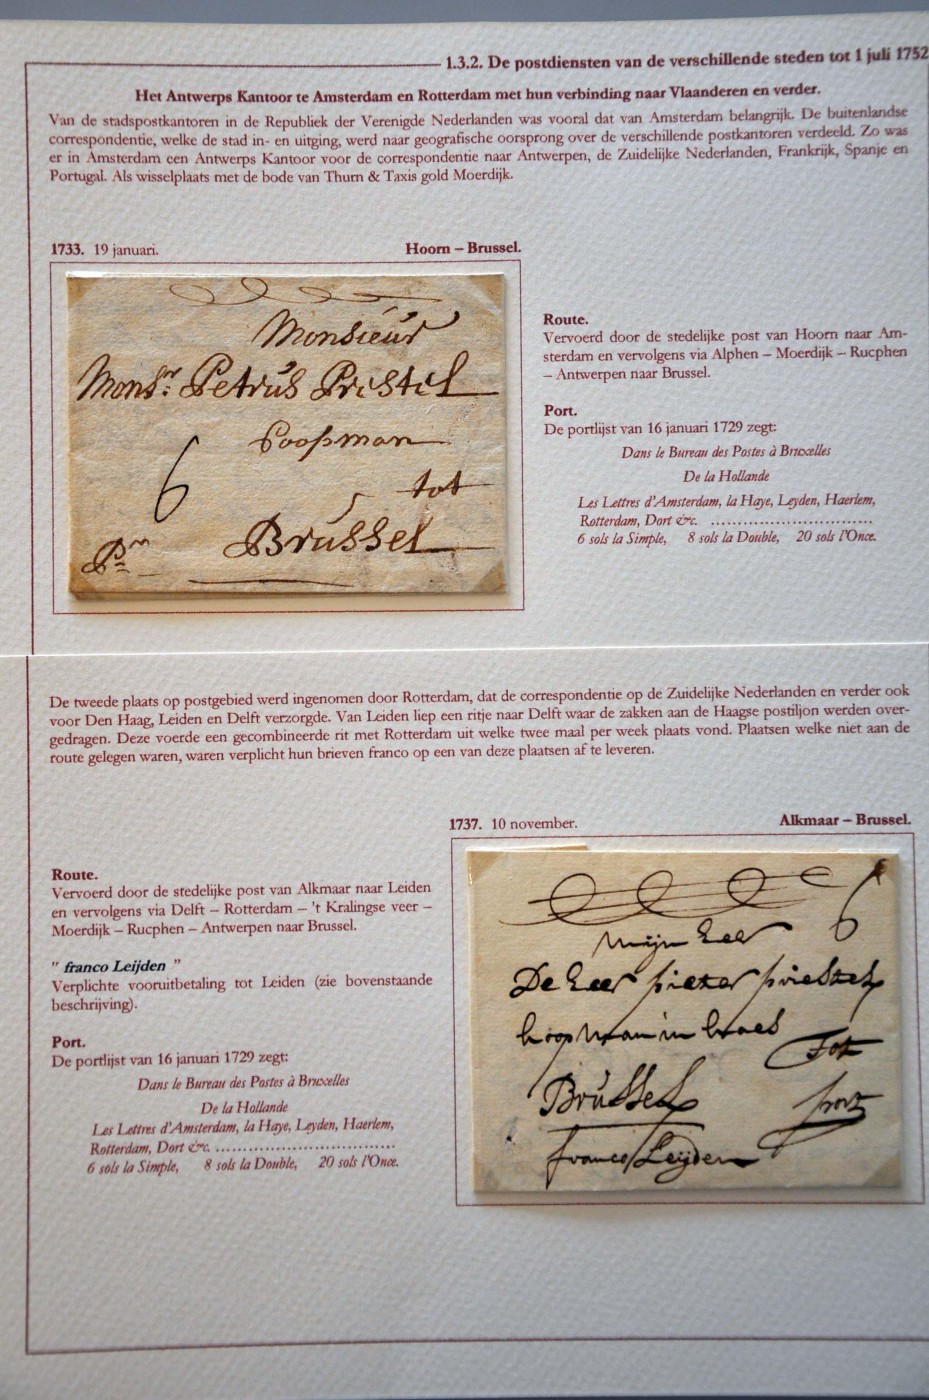 1.3.2. De postdiensten van de verschillende steden tot 1 juli 1752
Het Antwerps Kantoor te Amsterdam en Rotterdam met hun verbinding naar Vlaanderen en verder.
Van de stadspostkantoren in de Republiek der Verenigde Nederlanden was vooral dat van Amsterdam belangrijk. De buitenlandse
correspondentie, welke de stad in- en uitging, werd naar geografische oorsprong over de verschillende postkantoren verdeeld. Zo was
er in Amsterdam een Antwerps Kantoor voor de correspondentie naar Antwerpen, de Zuidelijke Nederlanden, Frankrijk, Spanje en
Portugal. Als wisselplaats met de bode van Thurn & Taxis gold Moerdijk.
1733. 19 januari.
Hoorn – Brussel.
Monsieur
Mons:r Petrus Pristel
Coopman
6
tot
Brussel
P:m
Route.
Vervoerd door de stedelijke post van Hoorn naar Am-
sterdam en vervolgens via Alphen – Moerdijk – Rucphen
– Antwerpen naar Brussel.
Port.
De portlijst van 16 januari 1729 zegt:
Dans le Bureau des Postes à Bruxelles
De la Hollande
Les Lettres d'Amsterdam, la Haye, Leyden, Haerlem,
Rotterdam, Dort &c. ..............................
6 sols la Simple, 8 sols la Double, 20 sols l'Once.
De tweede plaats op postgebied werd ingenomen door Rotterdam, dat de correspondentie op de Zuidelijke Nederlanden en verder ook
voor Den Haag, Leiden en Delft verzorgde. Van Leiden liep een ritje naar Delft waar de zakken aan de Haagse postiljon werden over-
gedragen. Deze voerde een gecombineerde rit met Rotterdam uit welke twee maal per week plaats vond. Plaatsen welke niet aan de
route gelegen waren, waren verplicht hun brieven franco op een van deze plaatsen af te leveren.
1737. 10 november.
Alkmaar – Brussel.
Route.
Vervoerd door de stedelijke post van Alkmaar naar Leiden
en vervolgens via Delft – Rotterdam – 't Kralingse veer –
Moerdijk – Rucphen – Antwerpen naar Brussel.
" franco Leijden "
Verplichte vooruitbetaling tot Leiden (zie bovenstaande
beschrijving).
Port.
De portlijst van 16 januari 1729 zegt:
Dans le Bureau des Postes à Bruxelles
De la Hollande
Les Lettres d'Amsterdam, la Haye, Leyden, Haerlem,
Rotterdam, Dort &c. ..............................
6 sols la Simple, 8 sols la Double, 20 sols l'Once.
6
Mijn Heer
De Heer pieter priestel
koopman in
Tot
Brussel
port
franco Leijden